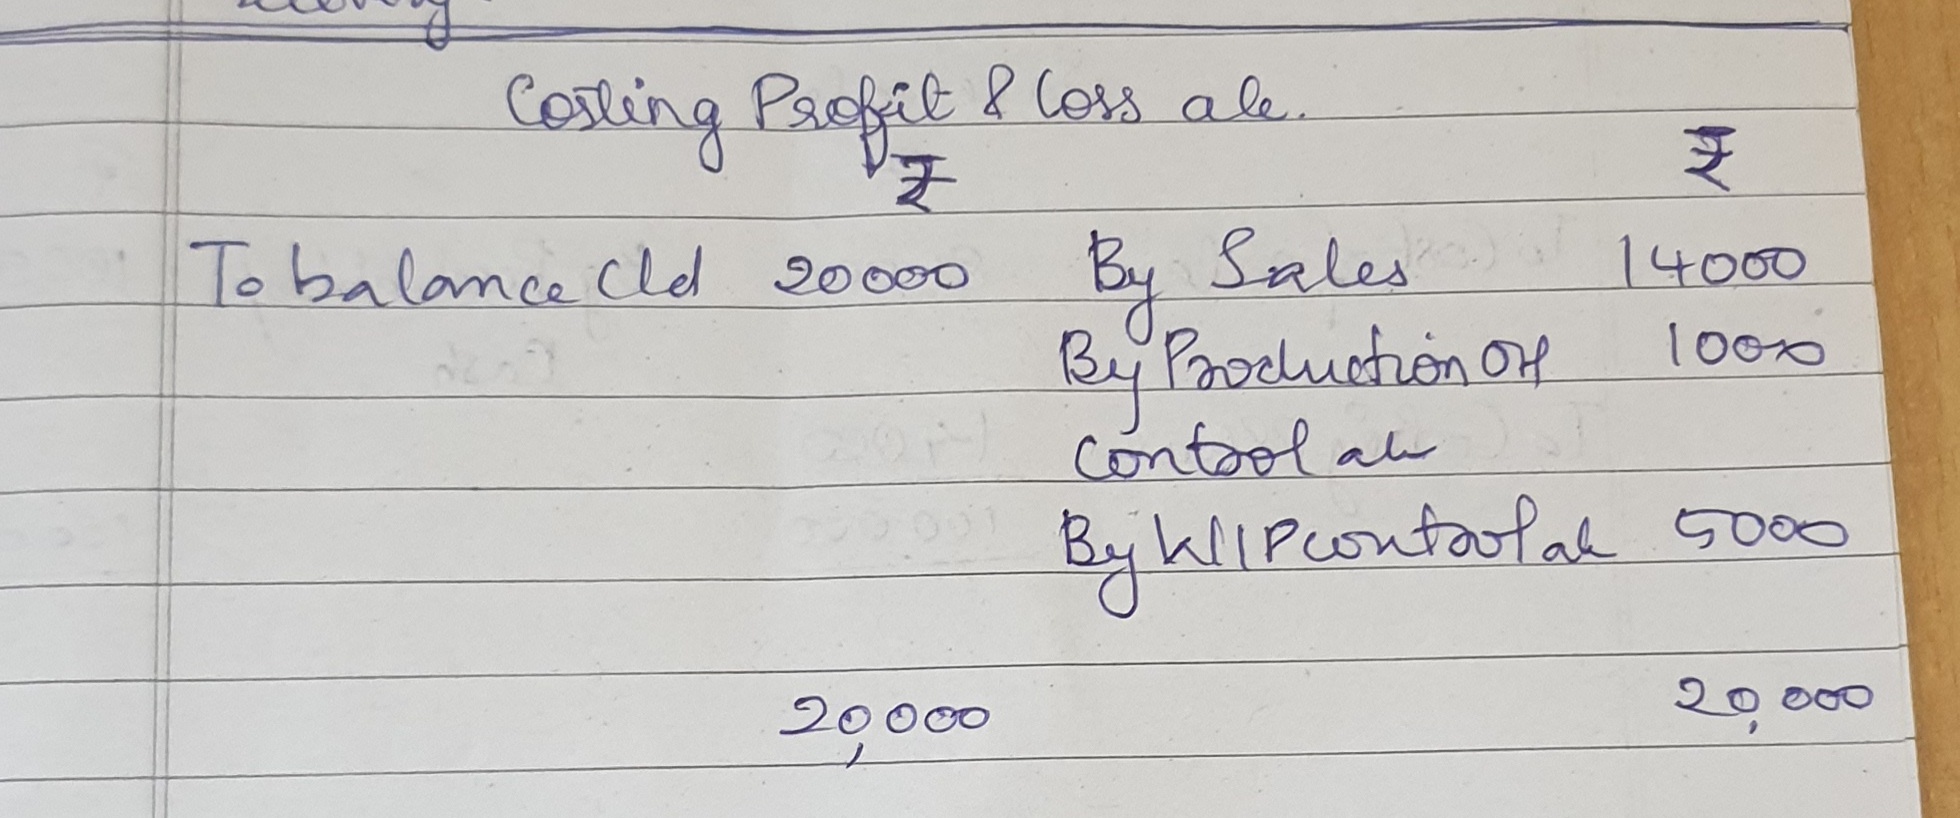 Costing Profit & Loss a/c.
₹ ₹
To balance C/d 20000 By Sales 14000
By Production OH 1000
Control a/c
By WIP control a/c 5000
20,000 20,000